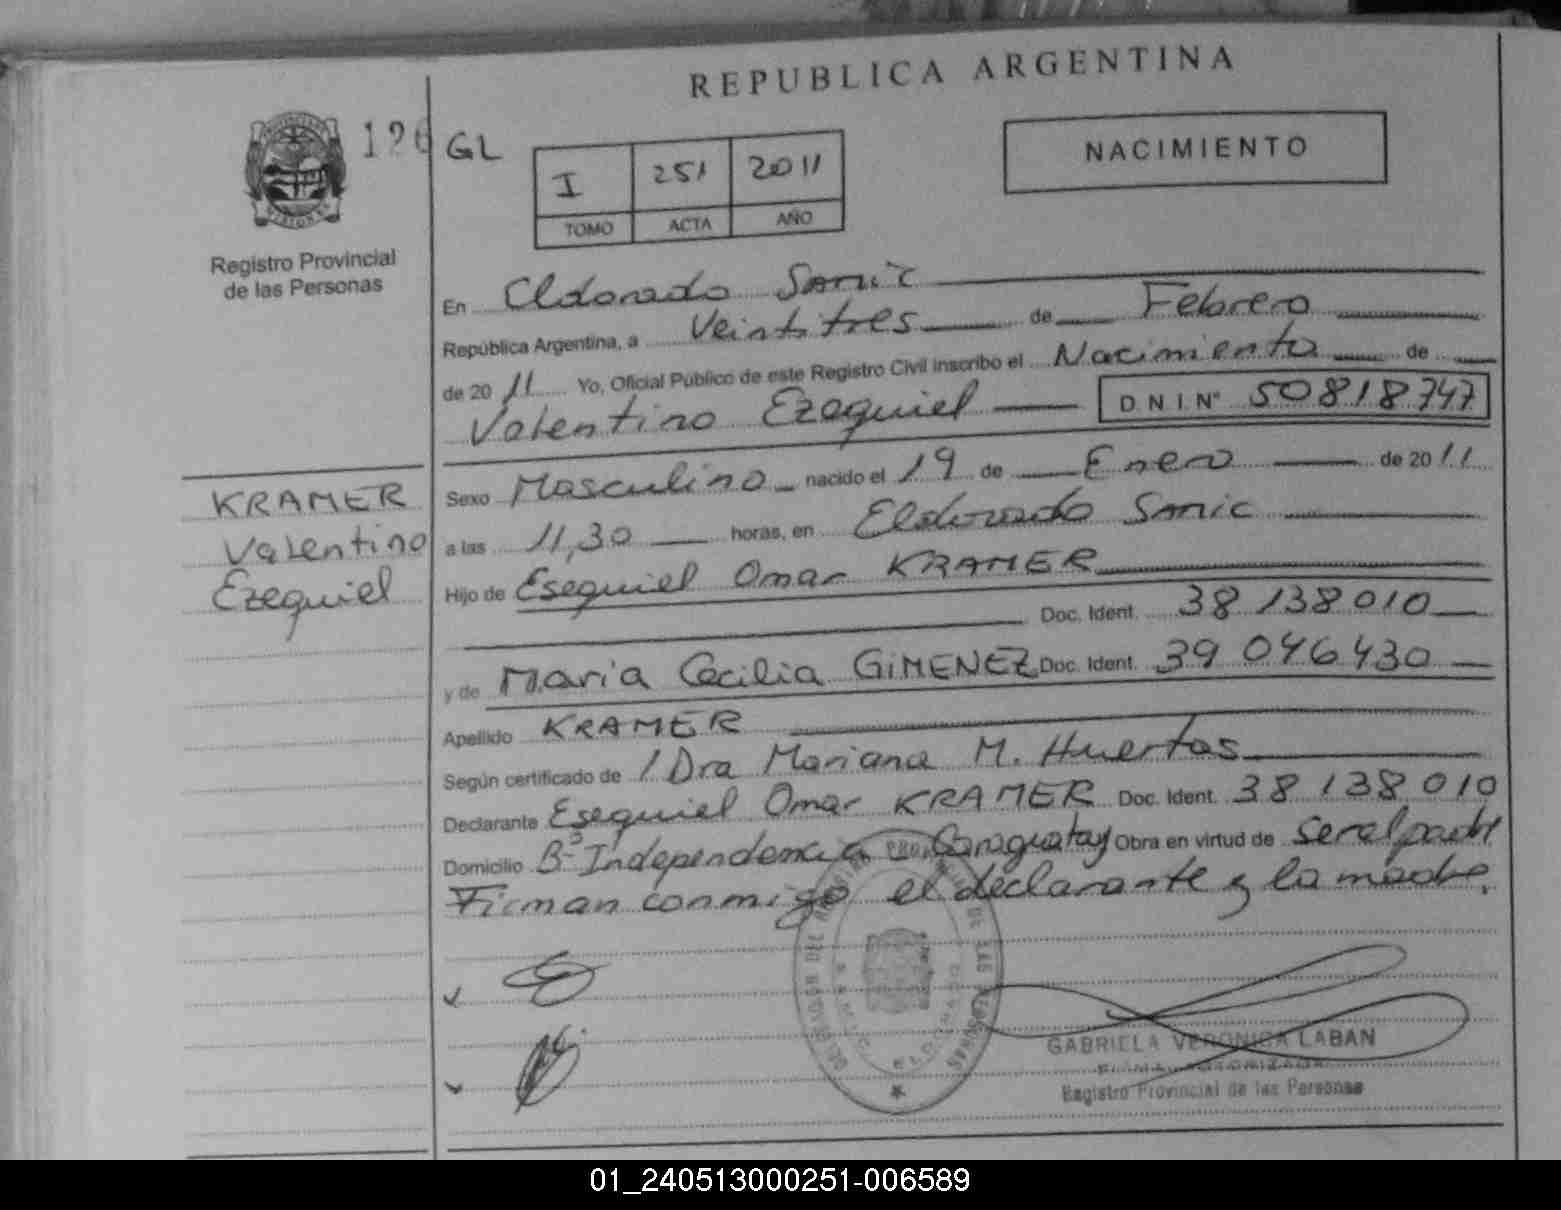 REPUBLICA ARGENTINA
126 GL
NACIMIENTO
I 251 2011
TOMO ACTA AÑO
Registro Provincial
de las Personas
En Eldorado Samic
República Argentina, a Veintitres de Febrero
de 20 11 Yo, Oficial Público de este Registro Civil inscribo el Nacimiento de
Valentino Ezequiel D.N.I. N° 50818747
KRAMER
Valentino
Ezequiel
Sexo Masculino nacido el 19 de Enero de 20 11
a las 11,30 horas, en Eldorado Samic
Hijo de Esequiel Omar KRAMER
Doc. Ident. 38 138 010
y de Maria Cecilia GIMENEZ Doc. Ident. 39 046 430
Apellido KRAMER
Según certificado de Dra Mariana M. Huertas
Declarante Esequiel Omar KRAMER Doc. Ident. 38 138 010
Domicilio B° Independencia Caraguatay Obra en virtud de ser el padre
Firman conmigo el declarante y la madre.
GABRIELA VERONICA LABAN
FIRMA AUTORIZADA
Registro Provincial de las Personas
01_240513000251-006589